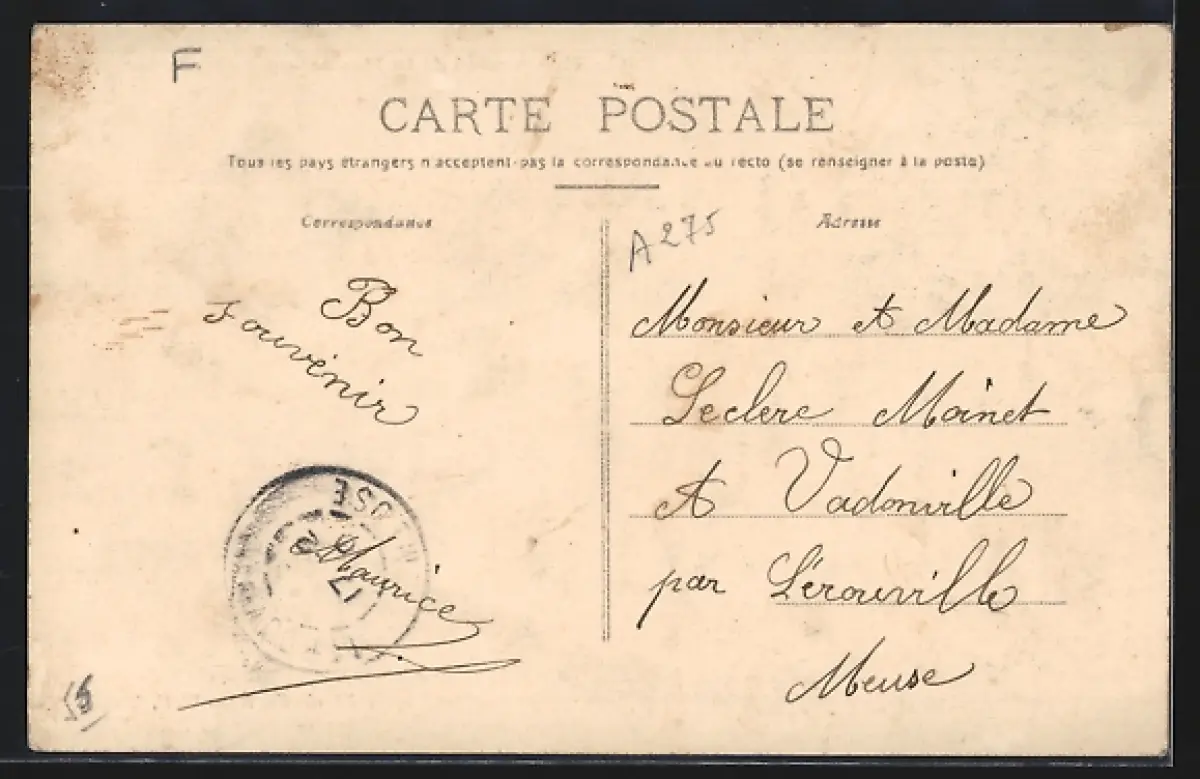 F
CARTE POSTALE
Tous les pays étrangers n'acceptent pas la correspondance au recto (se renseigner à la poste)
Correspondance
Adresse
A275
Bon
Souvenir
Maurice
Monsieur et Madame
Leclerc Moinet
A Vadonville
par Lérouville
Meuse
OISE
17